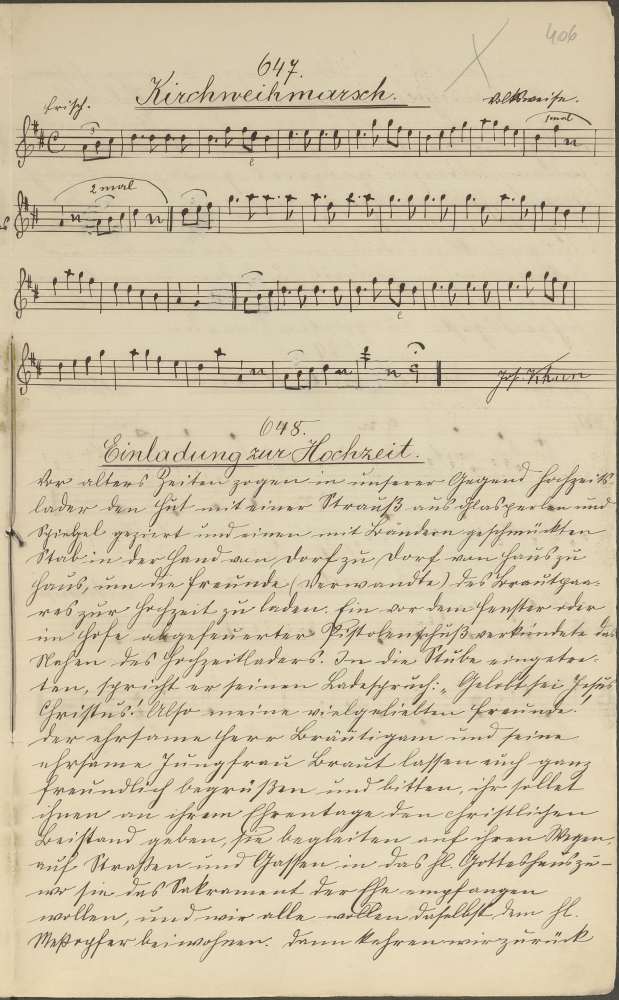 406
647.
Kirchweihmarsch.
Frisch.
Volksweise.
3
1mal
2mal
Jos.
648.
Einladung zur Hochzeit.
Vor alters Zeiten zogen in unserer Gegend Hochzeits-
lader den Hut mit einer Strauß aus Glasperlen und
Spiegel geziert und einen mit Bändern geschmückten
Stab in der Hand von Dorf zu Dorf von Haus zu
Haus, um die Freunde (Verwandte) des Brautpaa-
res zur Hochzeit zu laden. Ein vor dem Fenster oder
im Hofe abgefeuerter Pistolenschuß verkündete das
Nahen des Hochzeitladers. In die Stube eingetre-
ten, spricht er seinen Ladespruch: „Gelobt sei Jesus
Christus! Also meine vielgeliebten Freunde.
Der ehrsame Herr Bräutigam und seine
ehrsame Jungfrau Braut lassen euch ganz
freundlich begrüßen und bitten, ihr sollet
ihnen an ihrem Ehrentage den christlichen
Beistand geben, sie begleiten auf ihren Wegen,
auf Straßen und Gassen, in das hl. Gotteshaus zu-
wo sie das Sakrament der Ehe empfangen
wollen, und wir alle wollen daselbst dem hl.
Meßopfer beiwohnen. Dann kehren wir zurück